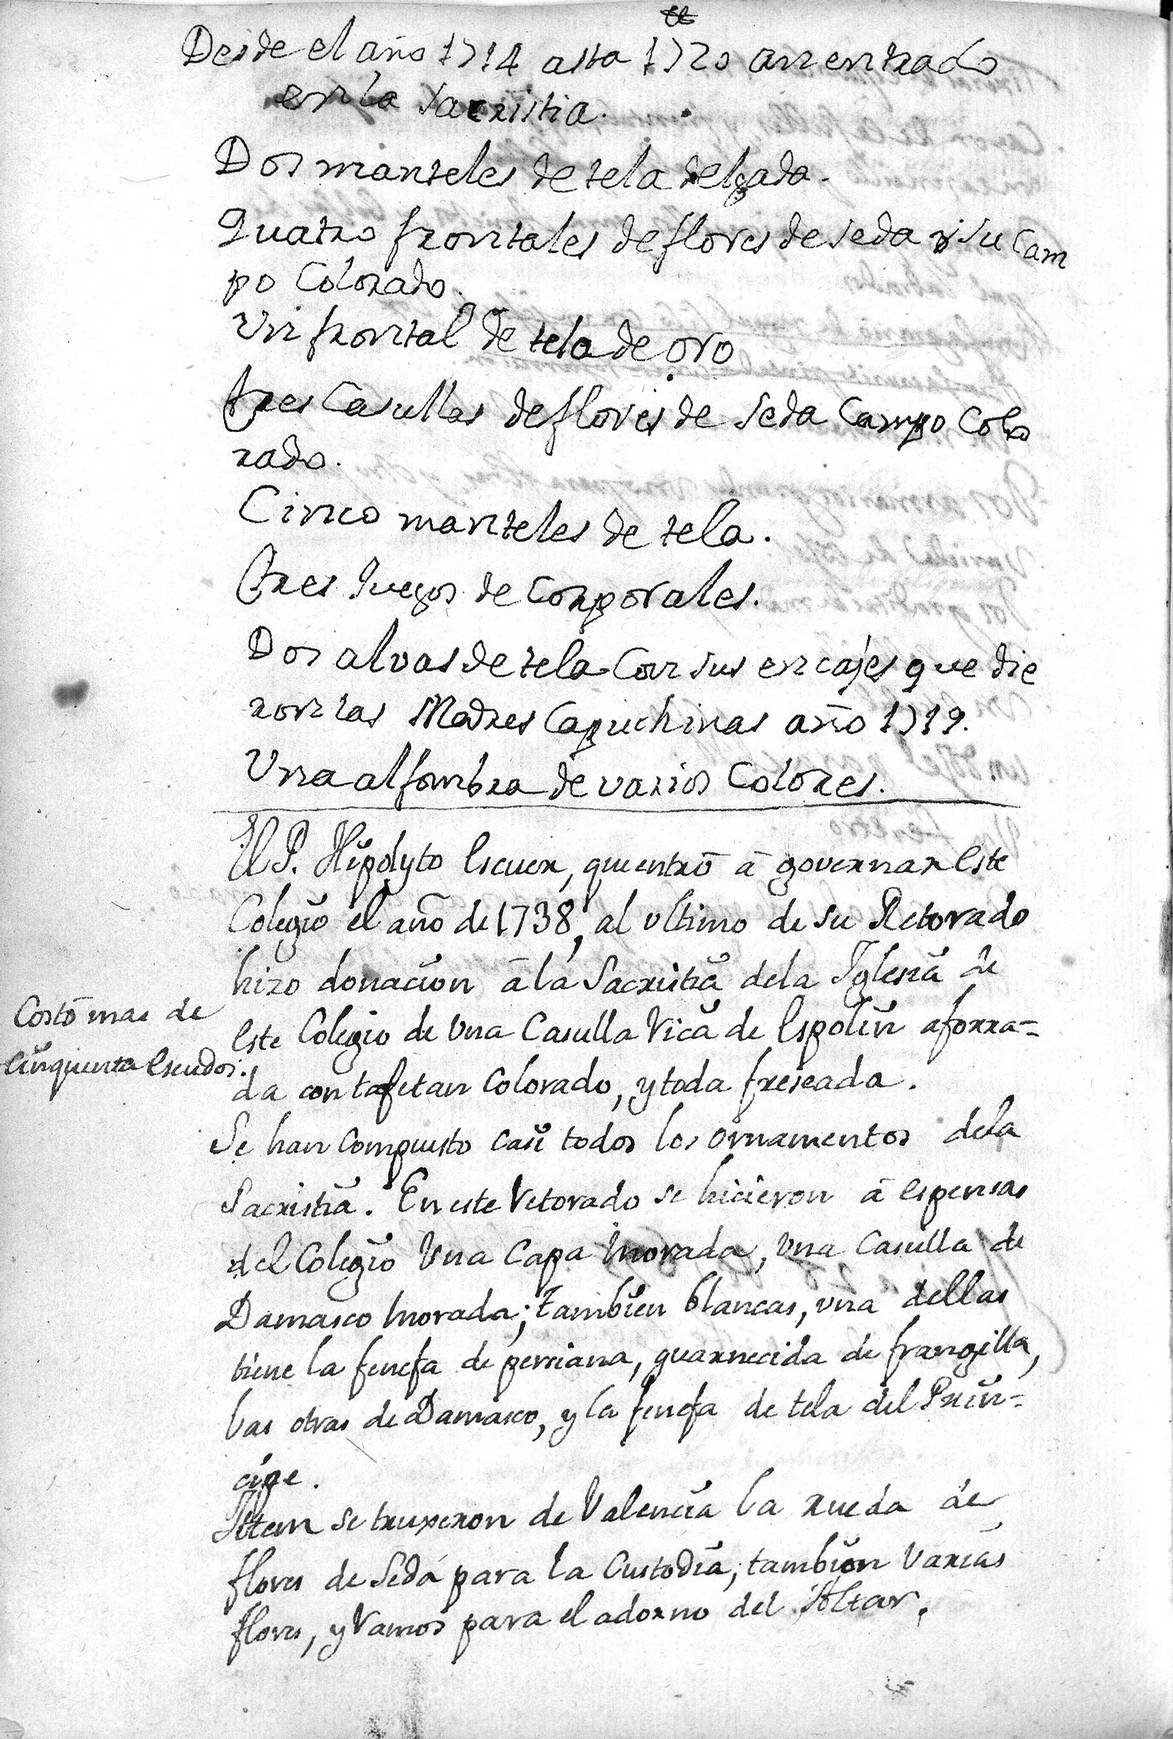 Desde el año 1714 asta 1720 an entrado
en la Sacristia.
Dos manteles de tela delgada.
Quatro frontales de flores de seda y su Cam
po Colorado.
Un frontal de tela de oro
tres Casullas de flores de seda Campo Colo
rado.
Cinco manteles de tela.
tres Juegos de Corporales.
Dos alvas de tela Con sus encajes que die
ron las Madres Capuchinas año 1719.
Una alfombra de varios Colores.
El P. Hipolyto Escuer, que entrò à governar este
Colegio el año de 1738, al ultimo de su Retorado
hizo donacion à la Sacristia de la Iglesia de
este Colegio de Una Casulla Rica de Espolin aforra-
da con tafetan Colorado, y toda freseada.
Costò mas de
Cinquenta Escudos.
Se han Compuesto Casi todos los ornamentos dela
Sacristia. En este Retorado se hicieron à espensas
del Colegio Una Capa morada, Una Casulla de
Damasco morada; tambien blancas, una dellas
tiene la fenefa de persiana, guarnecida de frangilla,
las otras de Damasco, y la fenefa de tela del Prin-
cipe.
Item se truxeron de Valencia la rueda de
flores de Seda para la Custodia; tambien varias
flores, y Ramos para el adorno del Altar.